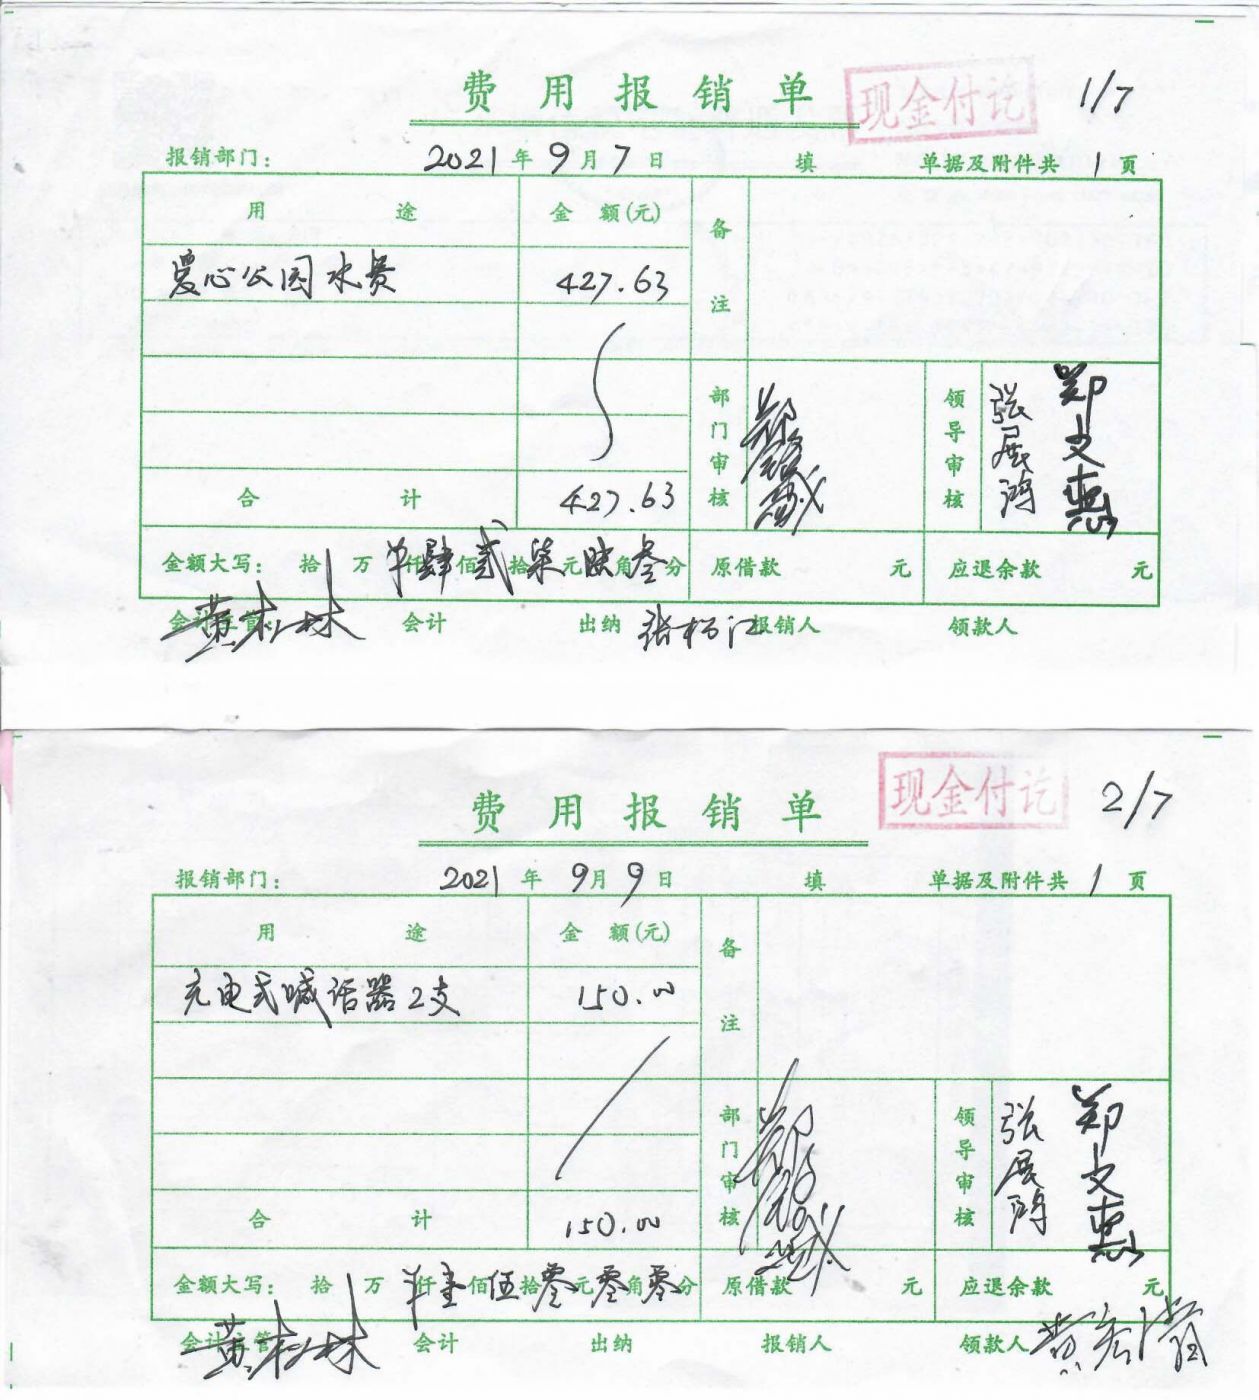 费用报销单 现金付讫 1/7
报销部门： 2021年9月7日 填 单据及附件共1页
用途 金额(元) 备注
爱心公园水费 427.63
部门审核 领导审核 张展鸿 郑文惠
合计 427.63
金额大写： 拾万仟肆佰贰拾柒元陆角叁分 原借款 元 应退余款 元
会计主管 会计 出纳 报销人 领款人
费用报销单 现金付讫 2/7
报销部门： 2021年9月9日 填 单据及附件共1页
用途 金额(元) 备注
充电式喊话器2支 150.00
部门审核 领导审核 张展鸿 郑文惠
合计 150.00
金额大写： 拾万仟壹佰伍拾零元零角零分 原借款 元 应退余款 元
会计主管 会计 出纳 报销人 领款人